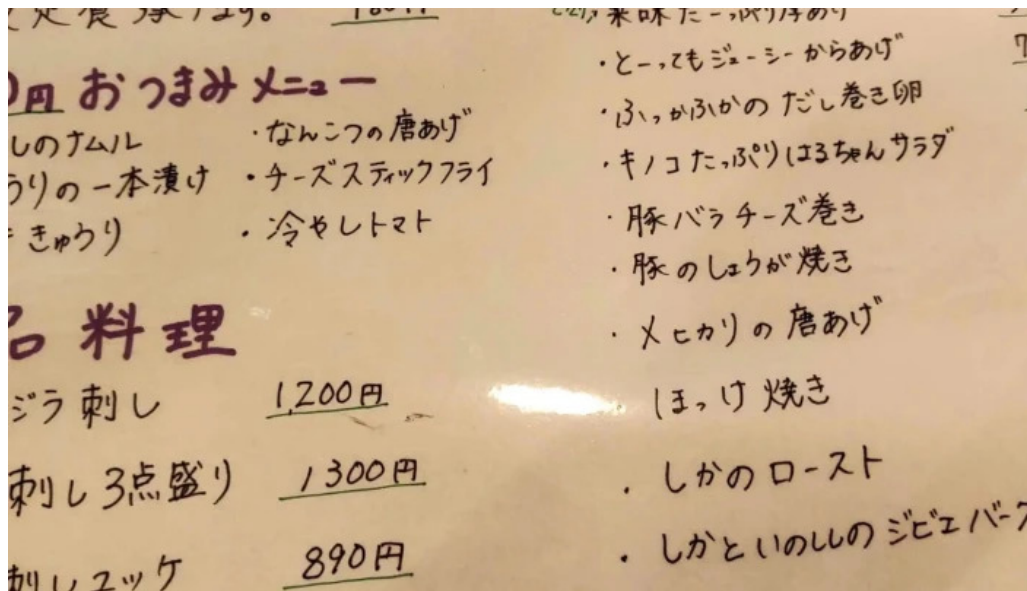 円 おつまみメニュー
しのナムル
・なんこつの唐あげ
うりの一本漬け
・チーズスティックフライ
きゅうり
・冷やしトマト
品 料理
ジラ刺し 1,200円
刺し3点盛り 1300円
刺しユッケ 890円
・とーってもジューシーからあげ
・ふっかふかの だし巻き卵
・キノコたっぷりはるちゃんサラダ
・豚バラチーズ巻き
・豚のしょうが焼き
・メヒカリの唐あげ
ほっけ焼き
・しかのロースト
・しかといのししのジビエバー